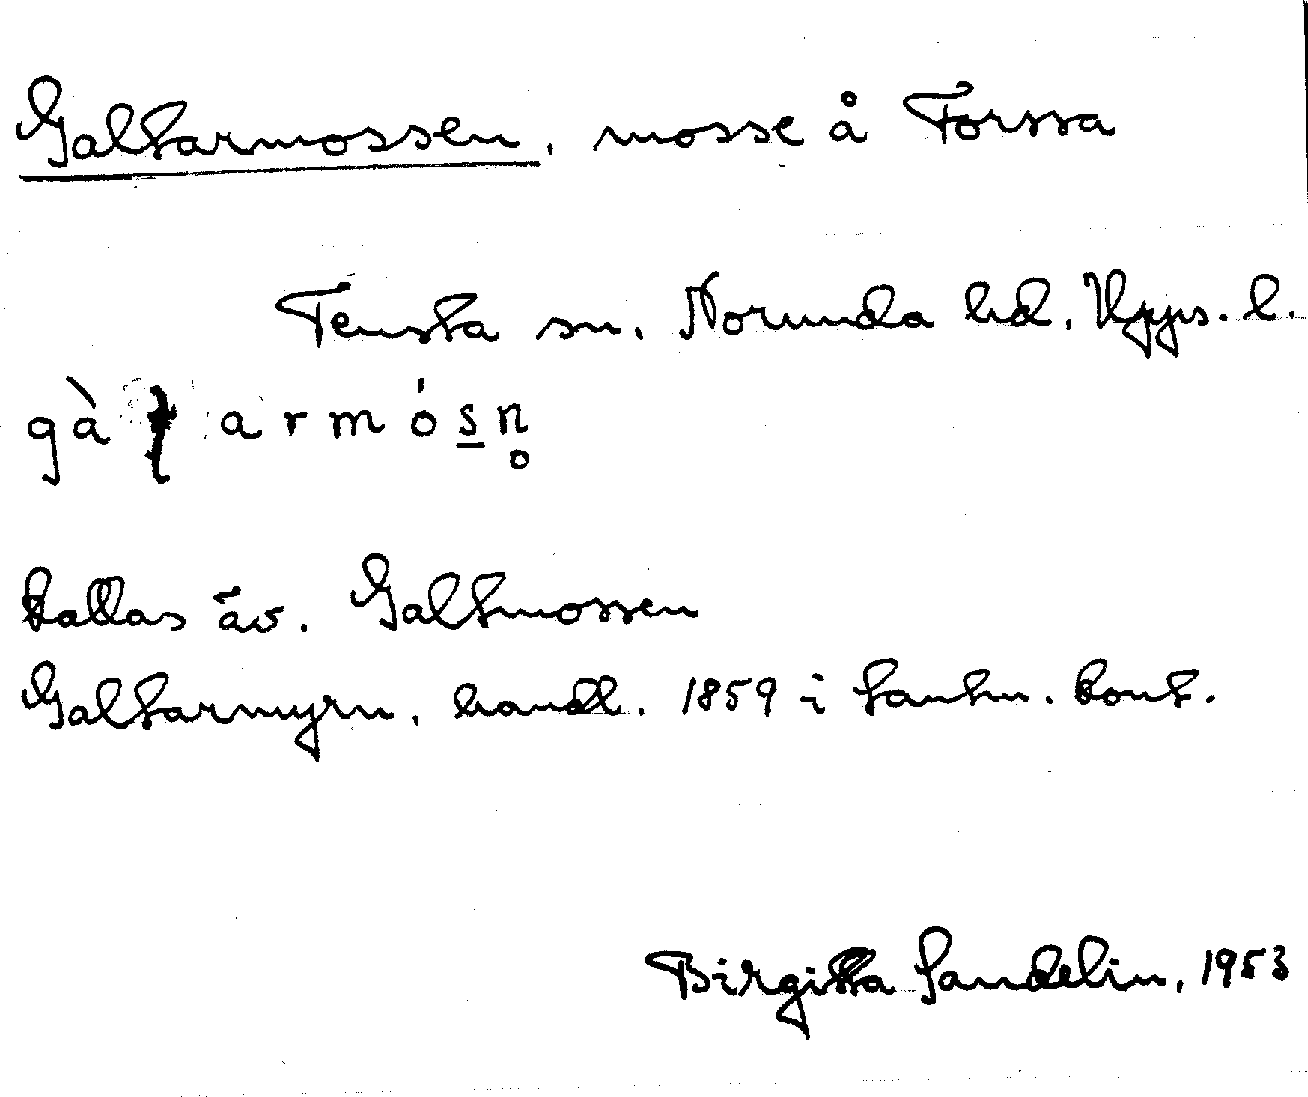 Galtarmossen, mosse å Forssa
Tensta sn. Norunda hd. Upps. l.
armósn̥
Kallas äv. Galtmossen
Galtarmyrn, handl. 1859 i lantm. kont.
Birgitta Sandelin, 1953